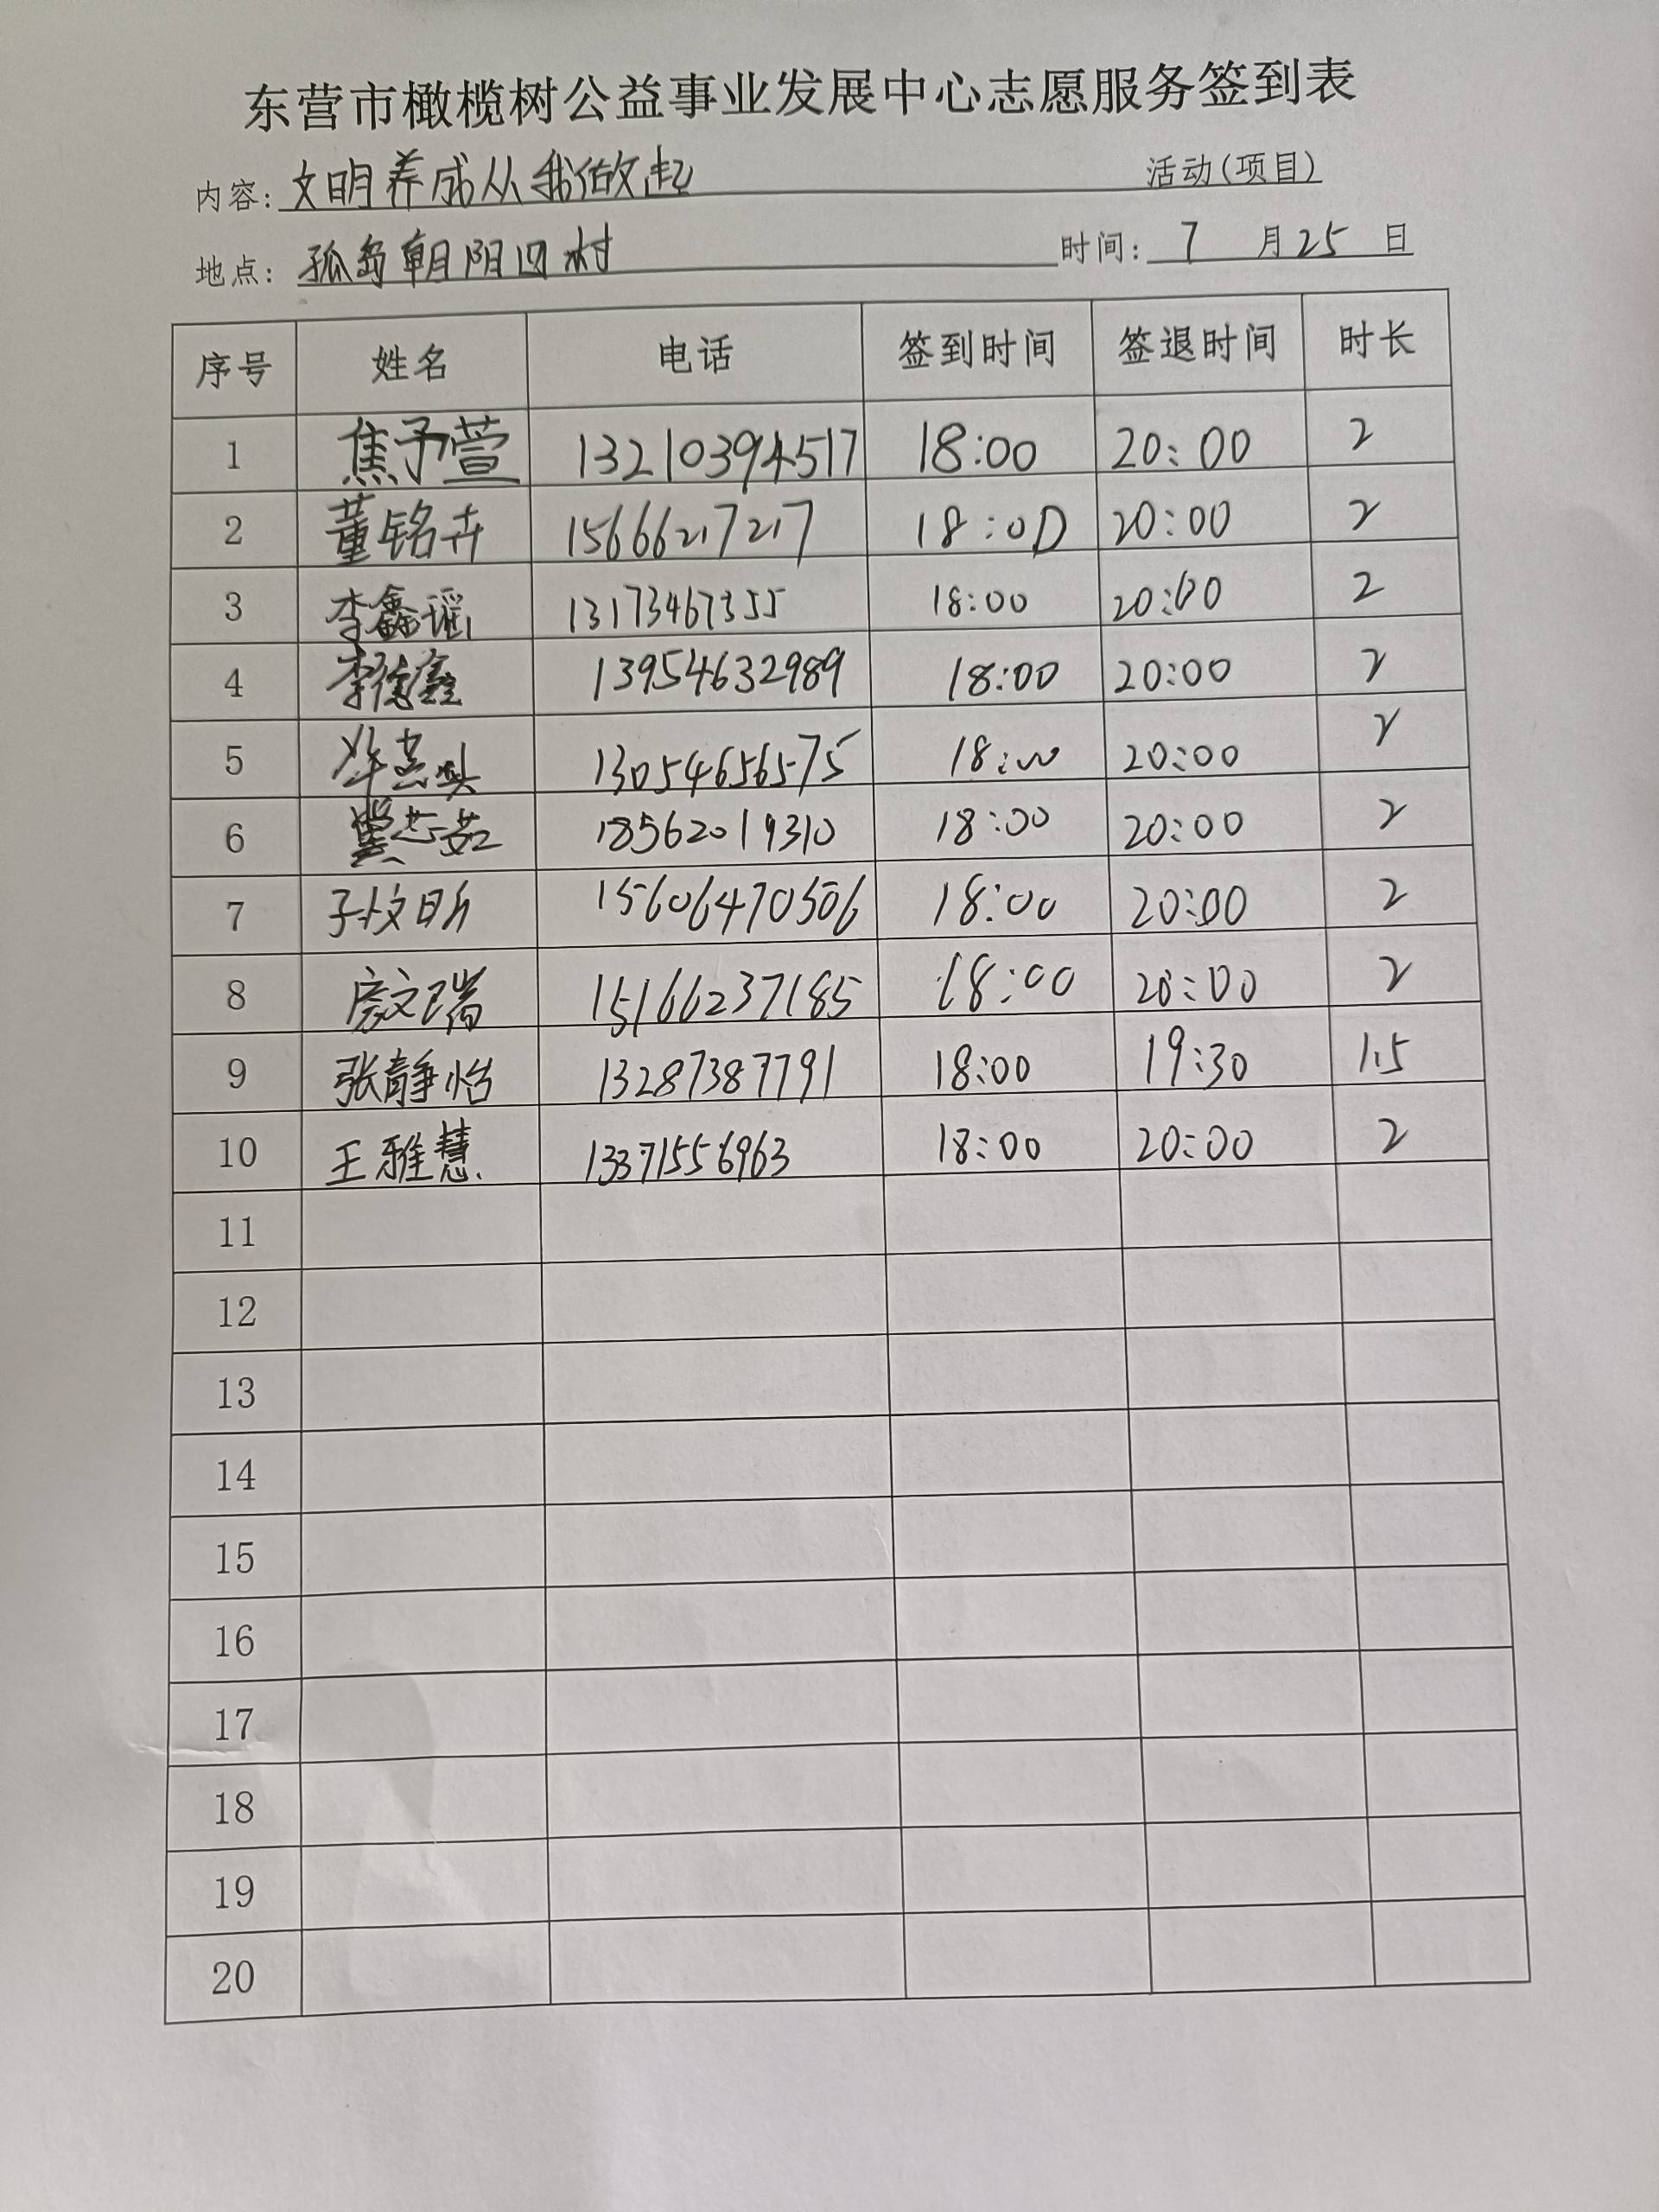 东营市橄榄树公益事业发展中心志愿服务签到表
内容: 文明养成从我做起 活动(项目)
地点: 孤岛朝阳四村 时间: 7 月 25 日
序号 姓名 电话 签到时间 签退时间 时长
1 焦予萱 13210394517 18:00 20:00 2
2 董铭卉 15666217217 18:00 20:00 2
3 李鑫瑶 13173467355 18:00 20:00 2
4 李德鑫 13954632989 18:00 20:00 2
5 13054656575 18:00 20:00 2
6 18562019310 18:00 20:00 2
7 15606470506 18:00 20:00 2
8 文瑞 15166237185 18:00 20:00 2
9 张静怡 13287387791 18:00 19:30 1.5
10 王雅慧 13371556963 18:00 20:00 2
11
12
13
14
15
16
17
18
19
20